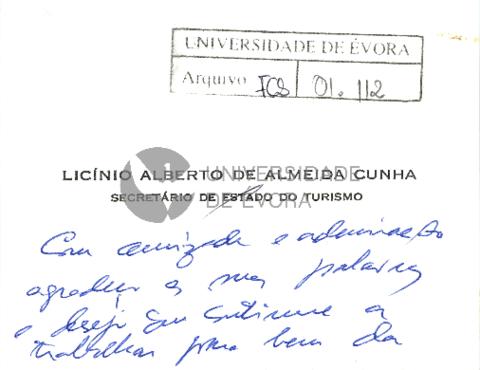 UNIVERSIDADE DE ÉVORA
Arquivo FCS 01. 112
LICÍNIO ALBERTO DE ALMEIDA CUNHA
SECRETÁRIO DE ESTADO DO TURISMO
UNIVERSIDADE
DE ÉVORA
Com amizade e admiração
agradeço as suas palavras
e desejo que continue a
trabalhar para bem da